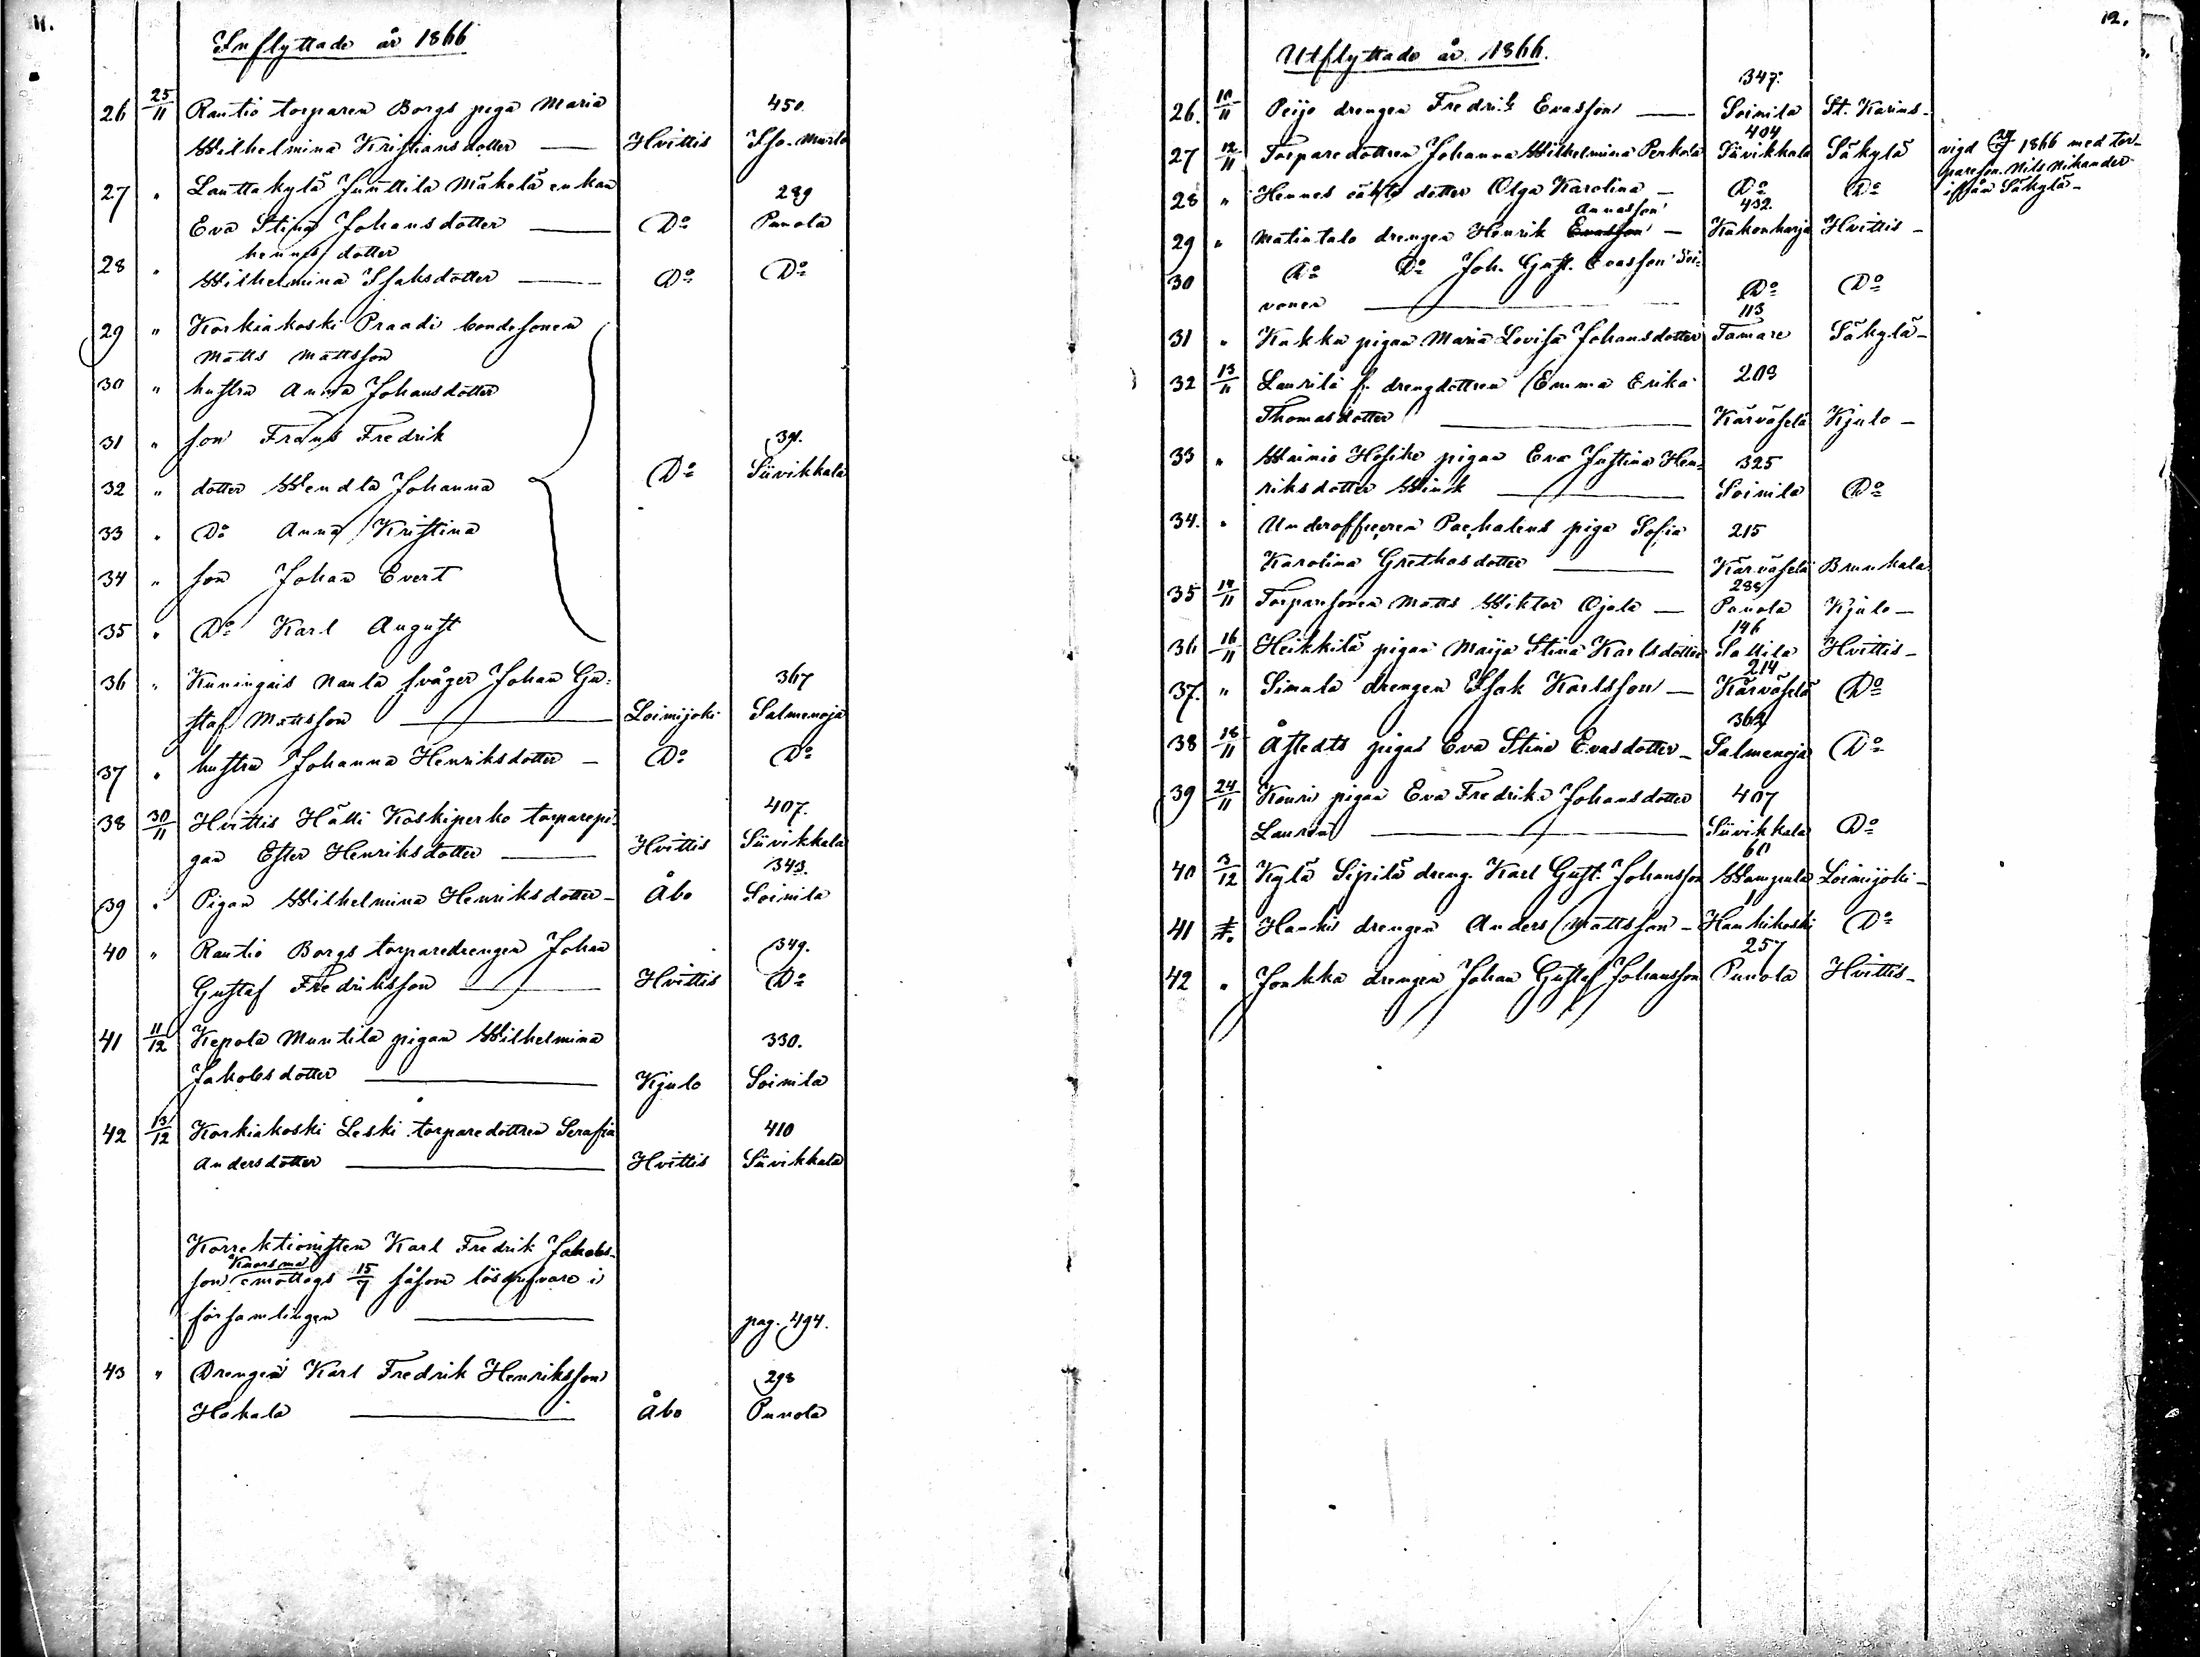 11.
Inflyttade år 1866
26 25/11 Rautio torparen Borgs piga Maria 450.
Wilhelmina Kristiansdotter — Hvittis Iso-Murto
27 " Lauttakylä Junttila Mäkelä enkan 289
Eva Stina Johansdotter — Do Punola
hennes dotter
28 " Wilhelmina Isaksdotter — Do Do
29 " Korkiakoski Praadi bondesonen
Matts Mattsson
30 " hustru Anna Johansdotter
31 " son Frans Fredrik 391.
32 " dotter Wendla Johanna Do Siivikkala
33 " Do Anna Kristina
34 " son Johan Evert
35 " Do Karl August
36 " Kuningais Nanla svåger Johan Gu- 367
staf Mattsson — Loimijoki Salmenoja
37 " hustru Johanna Henriksdotter — Do Do
38 30/11 Hvittis Hälli Koskiperho torparepi- 407.
gan Ester Henriksdotter — Hvittis Siivikkala
343.
39 " Pigan Wilhelmina Henriksdotter — Åbo Soinila
40 " Rautio Borgs torparedrengen Johan 349.
Gustaf Fredriksson — Hvittis Do
41 11/12 Kepola Muntila pigan Wilhelmina 330.
Jakobsdotter — Kjulo Soinila
42 13/12 Korkiakoski Leski torparedottren Serafia 410
Andersdotter — Hvittis Siivikkala
Korrektionisten Karl Fredrik Jakobs-
Kaarsma
son emottogs 15/7 såsom lösdrifvare i
församlingen — pag. 494.
43 " Drengen Karl Fredrik Henriksson 298
Hakala — Åbo Punola
12.
Utflyttade år 1866.
347.
26. 10/11 Peijo drengen Fredrik Evasson — Soinila St. Karins —
404
27 12/11 Torparedottren Johanna Wilhelmina Perkola Siivikkala Säkylä vigd 1866 med tor-
paresn. Nils Nikander
ifrån Säkylä —
28 " Hennes oäkta dotter Olga Karolina — Do Do
Annasson 432.
29 " Matintalo drengen Henrik Evasson — Kakonharja Hvittis —
30 Do Do Joh. Gust. Evasson Soi-
vonen — Do Do
113
31 " Kukku pigan Maria Lovisa Johansdotter Tamare Säkylä —
32 13/11 Laurila f. drengdottren Emma Erika 203
Thomasdotter — Karväselä Kjulo —
33 " Wainio Hosike pigan Eva Justina Hen- 325
riksdotter Wink — Soinila Do
34. " Underofficeren Pachalens piga Sofia 215
Karolina Grethasdotter — Karväselä Brunkala
288
35 14/11 Torparesonen Matts Wiktor Ojala — Punola Kjulo —
146
36 16/11 Heikkilä pigan Maija Stina Karlsdotter Sallila Hvittis —
214
37. " Simula drengen Isak Karlsson — Karväselä Do
362
38 18/11 Åstedts pigan Eva Stina Evasdotter — Salmenoja Do
39 24/11 Kouri pigan Eva Fredrika Johansdotter 407
Laurén — Siivikkala Do
60
40 3/12 Kylä Sipilä dreng. Karl Gust. Johansson Wampula Loimijoki —
1
41 Hanki drengen Anders Mattsson — Hankikoski Do
257
42 " Jonkka drengen Johan Gustaf Johansson Punola Hvittis —